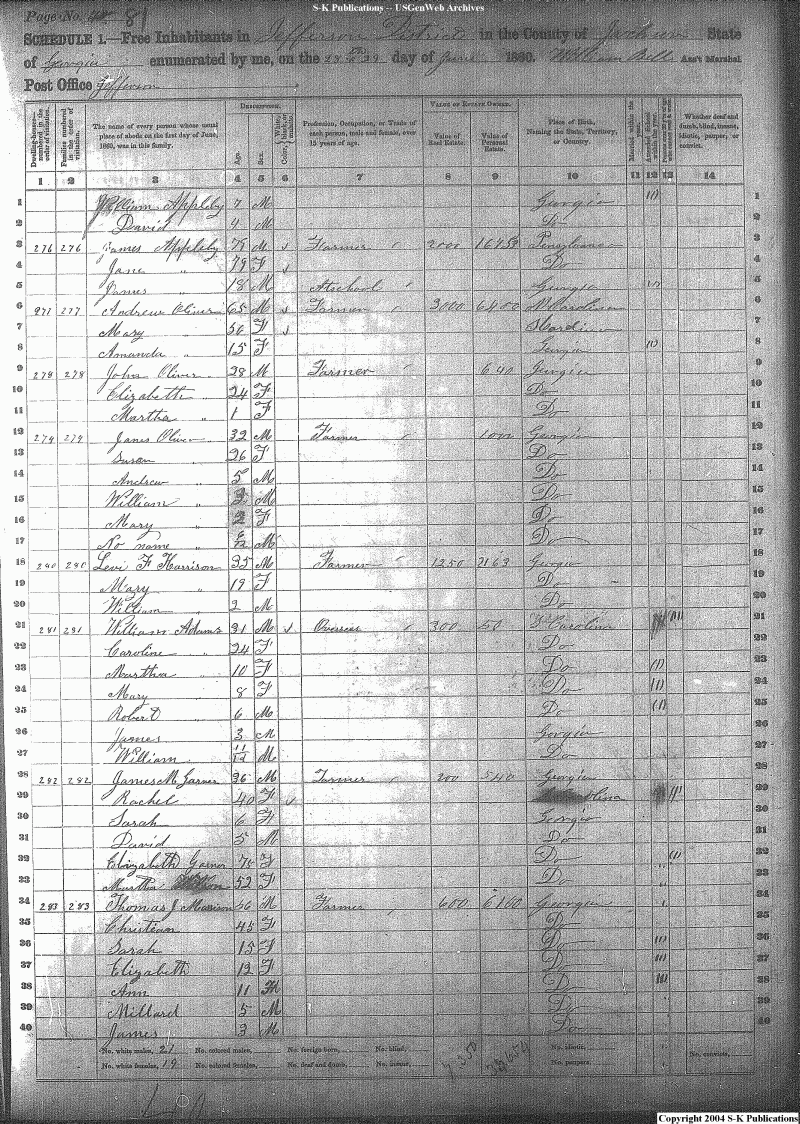 S-K Publications -- USGenWeb Archives
Page No. 81
SCHEDULE 1.—Free Inhabitants in Jefferson District in the County of Jackson State
of Georgia enumerated by me, on the 28th & 29 day of June 1860. William Bell Ass't Marshal
Post Office Jefferson
Dwelling-houses— numbered in the order of visitation.
Families numbered in the order of visitation.
The name of every person whose usual place of abode on the first day of June, 1860, was in this family.
DESCRIPTION.
Age.
Sex.
Color,
Profession, Occupation, or Trade of each person, male and female, over 15 years of age.
VALUE OF ESTATE OWNED.
Value of Real Estate.
Value of Personal Estate.
Place of Birth, Naming the State, Territory, or Country.
Married within the year.
Whether deaf and dumb, blind, insane, idiotic, pauper, or convict.
1 2 3 4 5 6 7 8 9 10 11 12 13 14
1 William Appleby 7 M Georgia 1 1
2 David 4 M Do 2
3 276 276 James Appleby 79 M Farmer 2000 Pensylvania 3
4 Jane " 79 F Do 4
5 James 18 M At school Georgia 1 5
6 277 277 Andrew Oliver 65 M Farmer 3000 6400 N Carolina 6
7 Mary " 56 F S Carolina 7
8 Amanda " 15 F Georgia 1 8
9 278 278 John Oliver 28 M Farmer 640 Georgia 9
10 Elizabeth " 24 F Do 10
11 Martha " 1 F Do 11
12 279 279 James Oliver 32 M Farmer 1000 Georgia 12
13 Susan " 26 F Do 13
14 Andrew " 5 M Do 14
15 William " M Do 15
16 Mary " 2 F Do 16
17 No name " M Do 17
18 280 280 Levi F Harrison 35 M Farmer 1250 2163 Georgia 18
19 Mary " 19 F Do 19
20 William " 2 M Do 20
21 281 281 William Adams 31 M Overseer 300 50 Carolina 1 21
22 Caroline " 24 F Do 22
23 Martha " 10 F Do 1 23
24 Mary 8 F Do 1 24
25 Robert " 6 M Do 1 25
26 James 3 M Georgia 26
27 William 11/12 M Do 27
28 282 282 James M Garner 36 M Farmer 200 540 Georgia 28
29 Rachel 40 F 1 29
30 Sarah 6 F Georgia 30
31 David 5 M Do 31
32 Elizabeth Garner F Do 1 32
33 Martha 52 F Do 33
34 283 283 Thomas J Marison 56 M Farmer 600 6100 Georgia 34
35 Christian 45 F Do 35
36 Sarah 15 F Do 1 36
37 Elizabeth 12 F Do 1 37
38 Ann 11 Do 1 38
39 Millard 5 M Do 39
40 James 3 M Do 40
No. white males, 21 No. colored males, No. foreign born, No. blind, No. idiotic,
No. white females, 19 No. colored females, No. deaf and dumb, No. insane, No. paupers, No. convicts,
Copyright 2004 S-K Publications